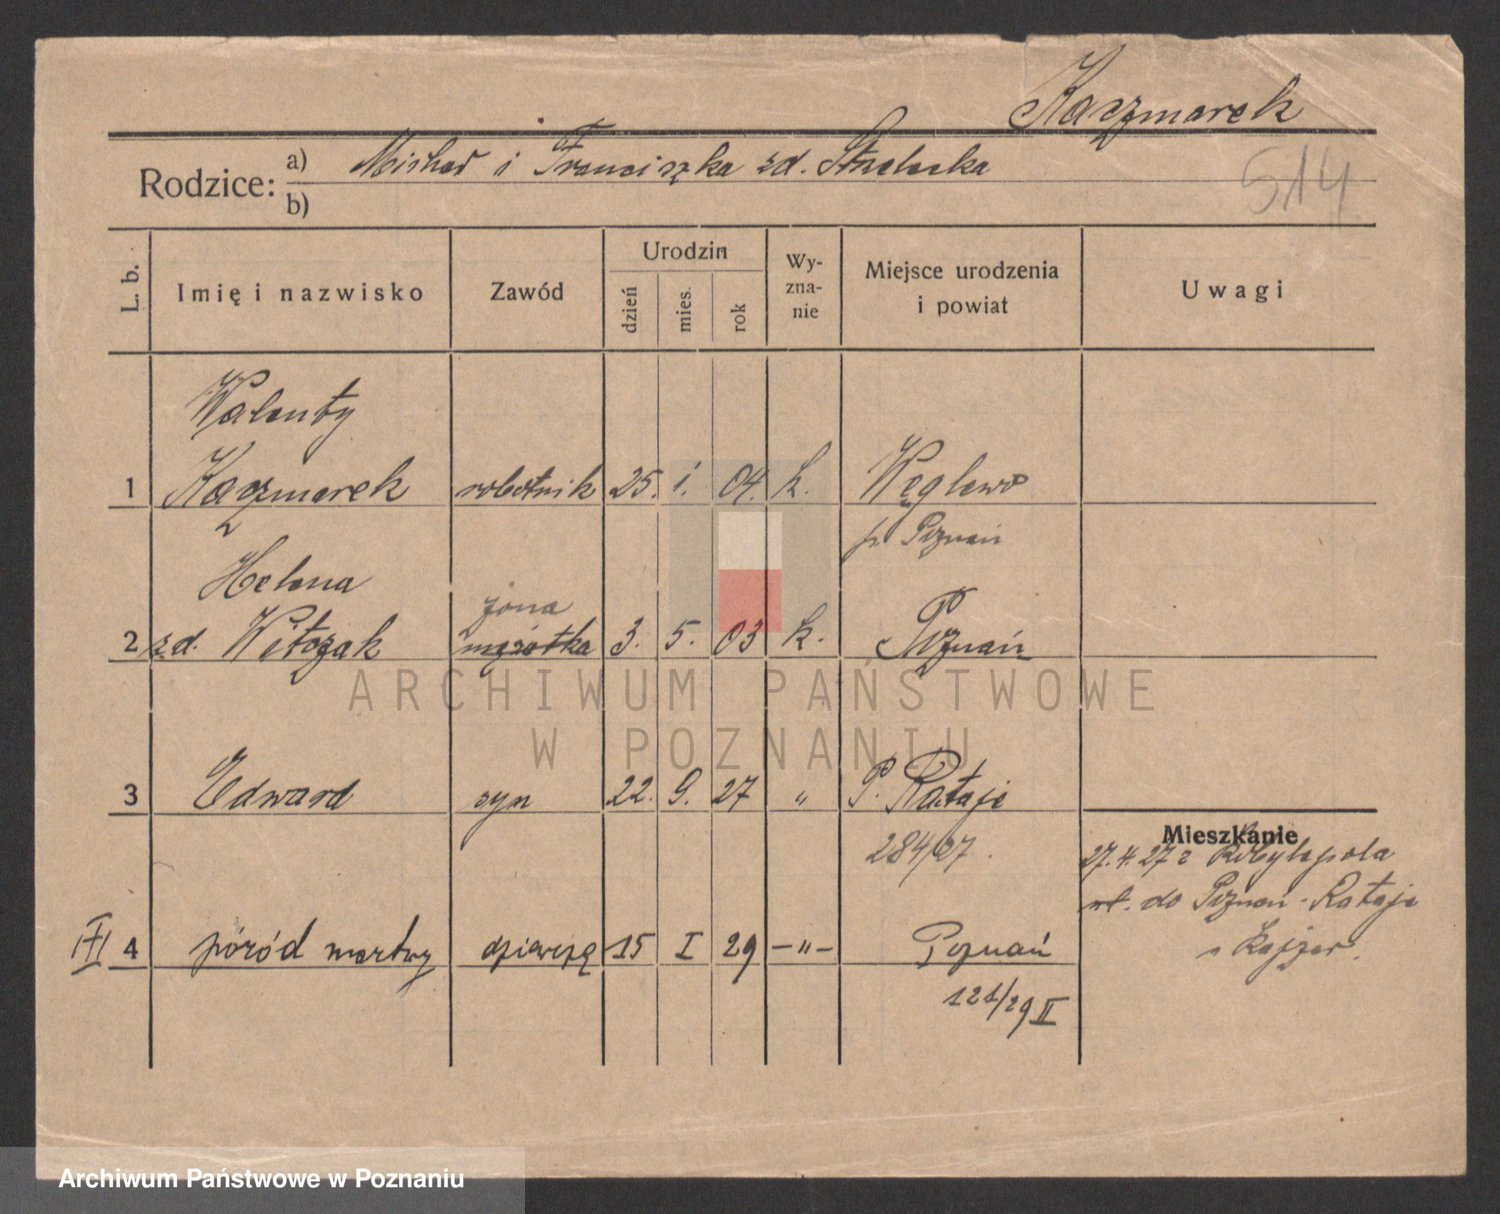 Kaczmarek
Rodzice: a) Michał i Franciszka zd. Strzelecka
b)
514
L. b.
Imię i nazwisko
Zawód
Urodzin
dzień
mies.
rok
Wy-
zna-
nie
Miejsce urodzenia
i powiat
Uwagi
Walenty
1 Kaczmarek robotnik 25. 1. 04. k. Węglewo
p. Poznań
Helena
żona
2 zd. Witczak mężatka 3. 5. 03 k. Poznań
ARCHIWUM PAŃSTWOWE
W POZNANIU
3 Edward syn 22. 9. 27 " P. Rataje
284/27.
Mieszkanie
27.4.27 z Kobylepola
do Poznań-Rataje
4 poród martwy dziewczę 15 I 29 -"- Poznań
121/29 II
Archiwum Państwowe w Poznaniu